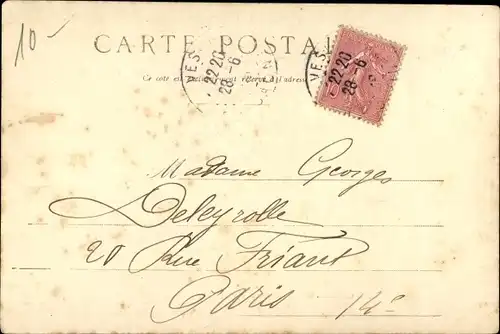 10-
CARTE POSTALE
Ce côté est exclusivement réservé à l'adresse
22 20
28 -6
22 20
28 -6
Madame Georges
Deleyrolle
20 Rue Friant
Paris 14e